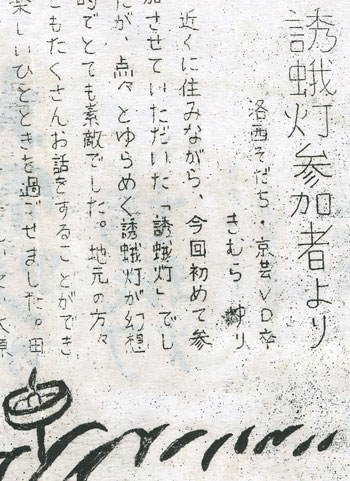 誘蛾灯参加者より
洛西そだち・京芸VD卒
きむら ゆり
近くに住みながら、今回初めて参
加させていただいた「誘蛾灯」でし
たが、点々とゆらめく誘蛾灯が幻想
的でとても素敵でした。地元の方々
ともたくさんお話をすることができ
楽しいひとときを過ごせました。田